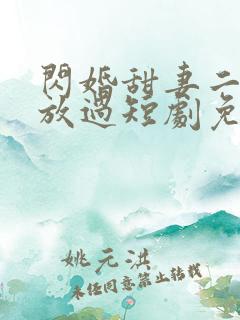 閃婚甜妻二
放過短劇免
姚元淇
未任同意禁止转载